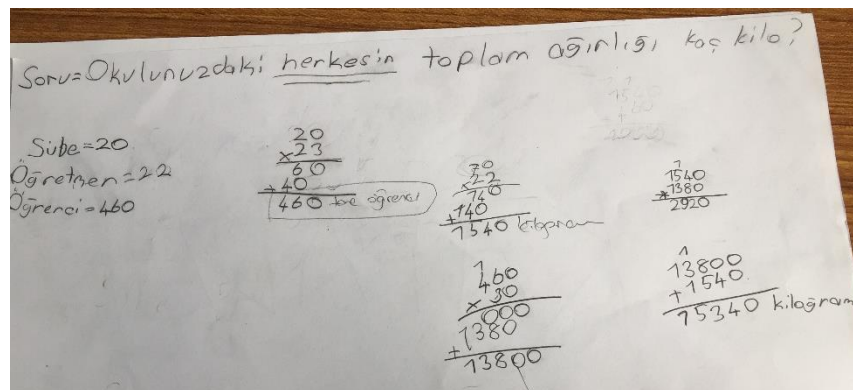 Soru=Okulunuzdaki herkesin toplam ağırlığı kaç kilo?
Şube=20
Öğretmen=22
Öğrenci=460
20
x23
60
+40
460 tane öğrenci
70
x22
140
+140
1540 kilogram
1
460
x30
000
1380
+
13800
1
1540
1380
2920
1
13800
+1540
15340 kiloğram